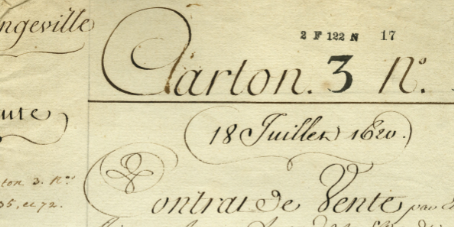 ngeville
2 F 122 N 17
Carton. 3 N.º
18 Juillet 1620.
ente
Contrat de Vente par
ton 3. N.os
35, et 72.